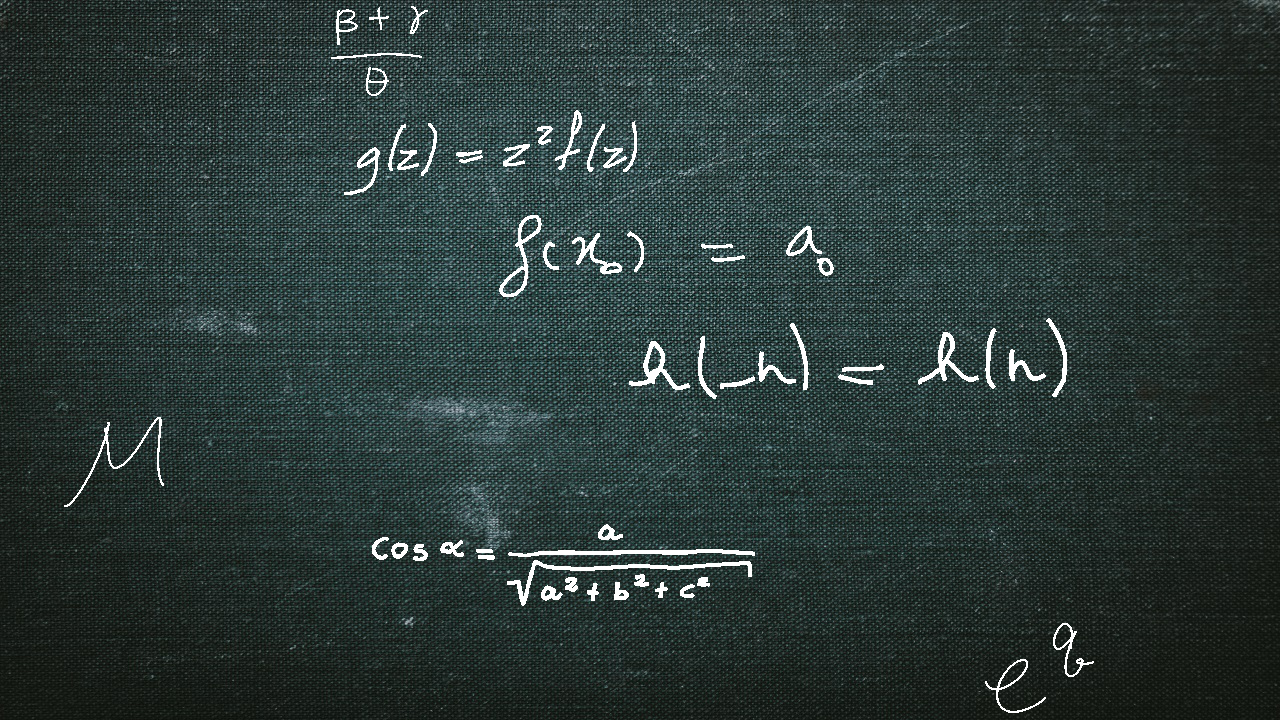 β + γ / θ
g(z) = z² f(z)
f(x₀) = a₀
h(-n) = h(n)
M
cos α = a / √(a² + b² + c²)
e^q